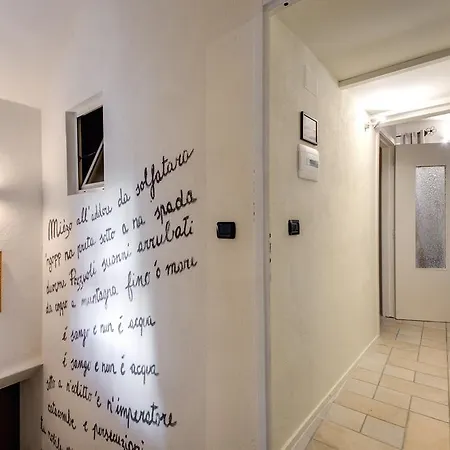 Miezo all'addore da solfatara
na preta sotto a na spada
Pozzuoli suonni arrubati
da coppo a muntagna fino 'o mari
è sango e nun è acqua
è sango e nun è acqua
sotto a n'editto 'e n'imperatore
catacombe e persecuzioni